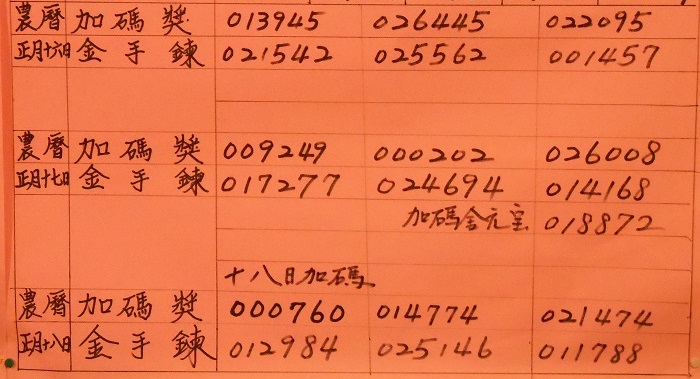 農曆 加碼獎 013945 026445 022095
正月十六日 金手鍊 021542 025562 001457
農曆 加碼獎 009249 000202 026008
正月十七日 金手鍊 017277 024694 014168
加碼金元宝 018872
十八日加碼
農曆 加碼獎 000760 014774 021474
正月十八日 金手鍊 012984 025146 011788